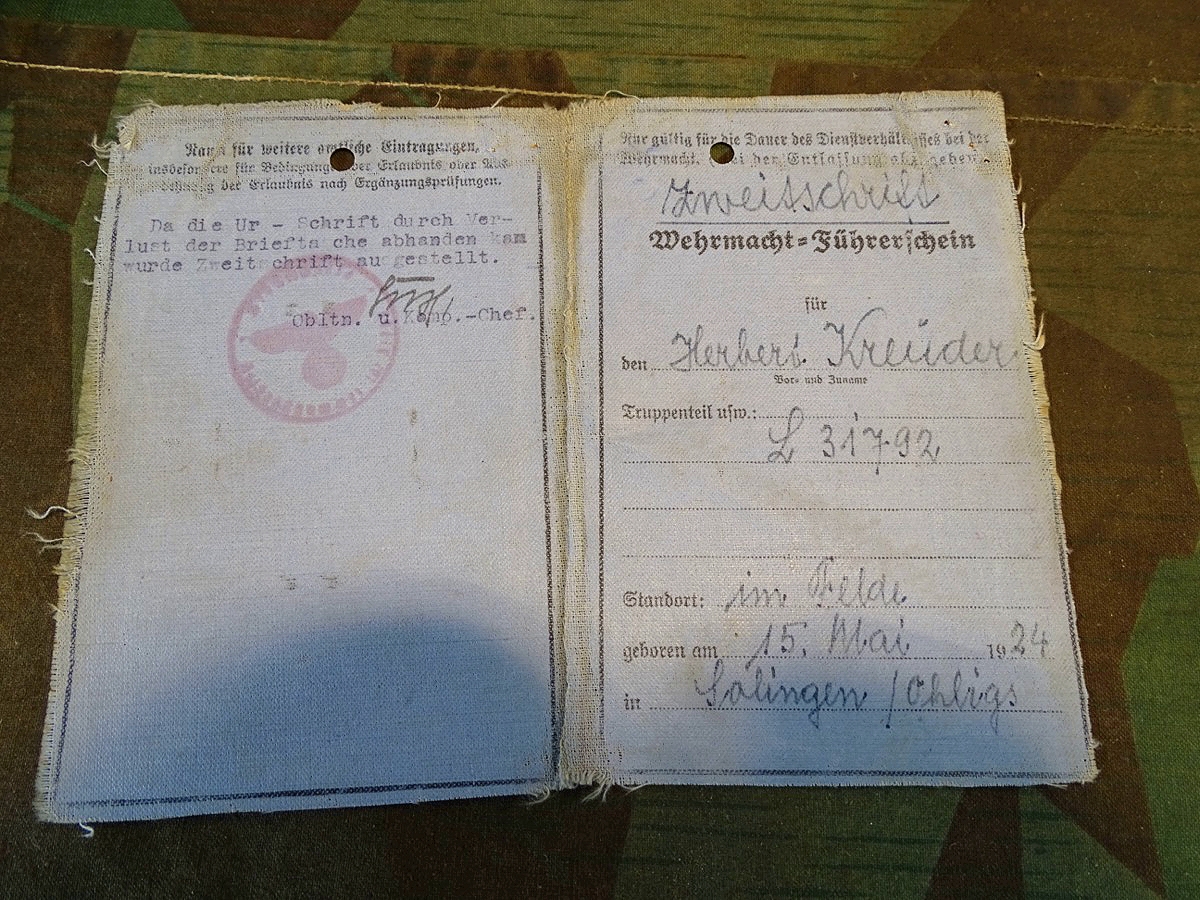 Raum für weitere amtliche Eintragungen,
insbesondere für Bedingungen der Erlaubnis oder Aus-
dehnung der Erlaubnis nach Ergänzungsprüfungen.
Da die Ur - Schrift durch Ver-
lust der Brieftasche abhanden kam
wurde Zweitschrift ausgestellt.
Obltn. u. Komp.-Chef.
Nur gültig für die Dauer des Dienstverhältnisses bei der
Wehrmacht. Bei der Entlassung abzugeben.
Zweitschrift
Wehrmacht-Führerschein
für
den Herbert Kreüder
Vor- und Zuname
Truppenteil usw.:
L 31792
Standort: im Felde
geboren am 15. Mai 1924
in Solingen / Ohligs